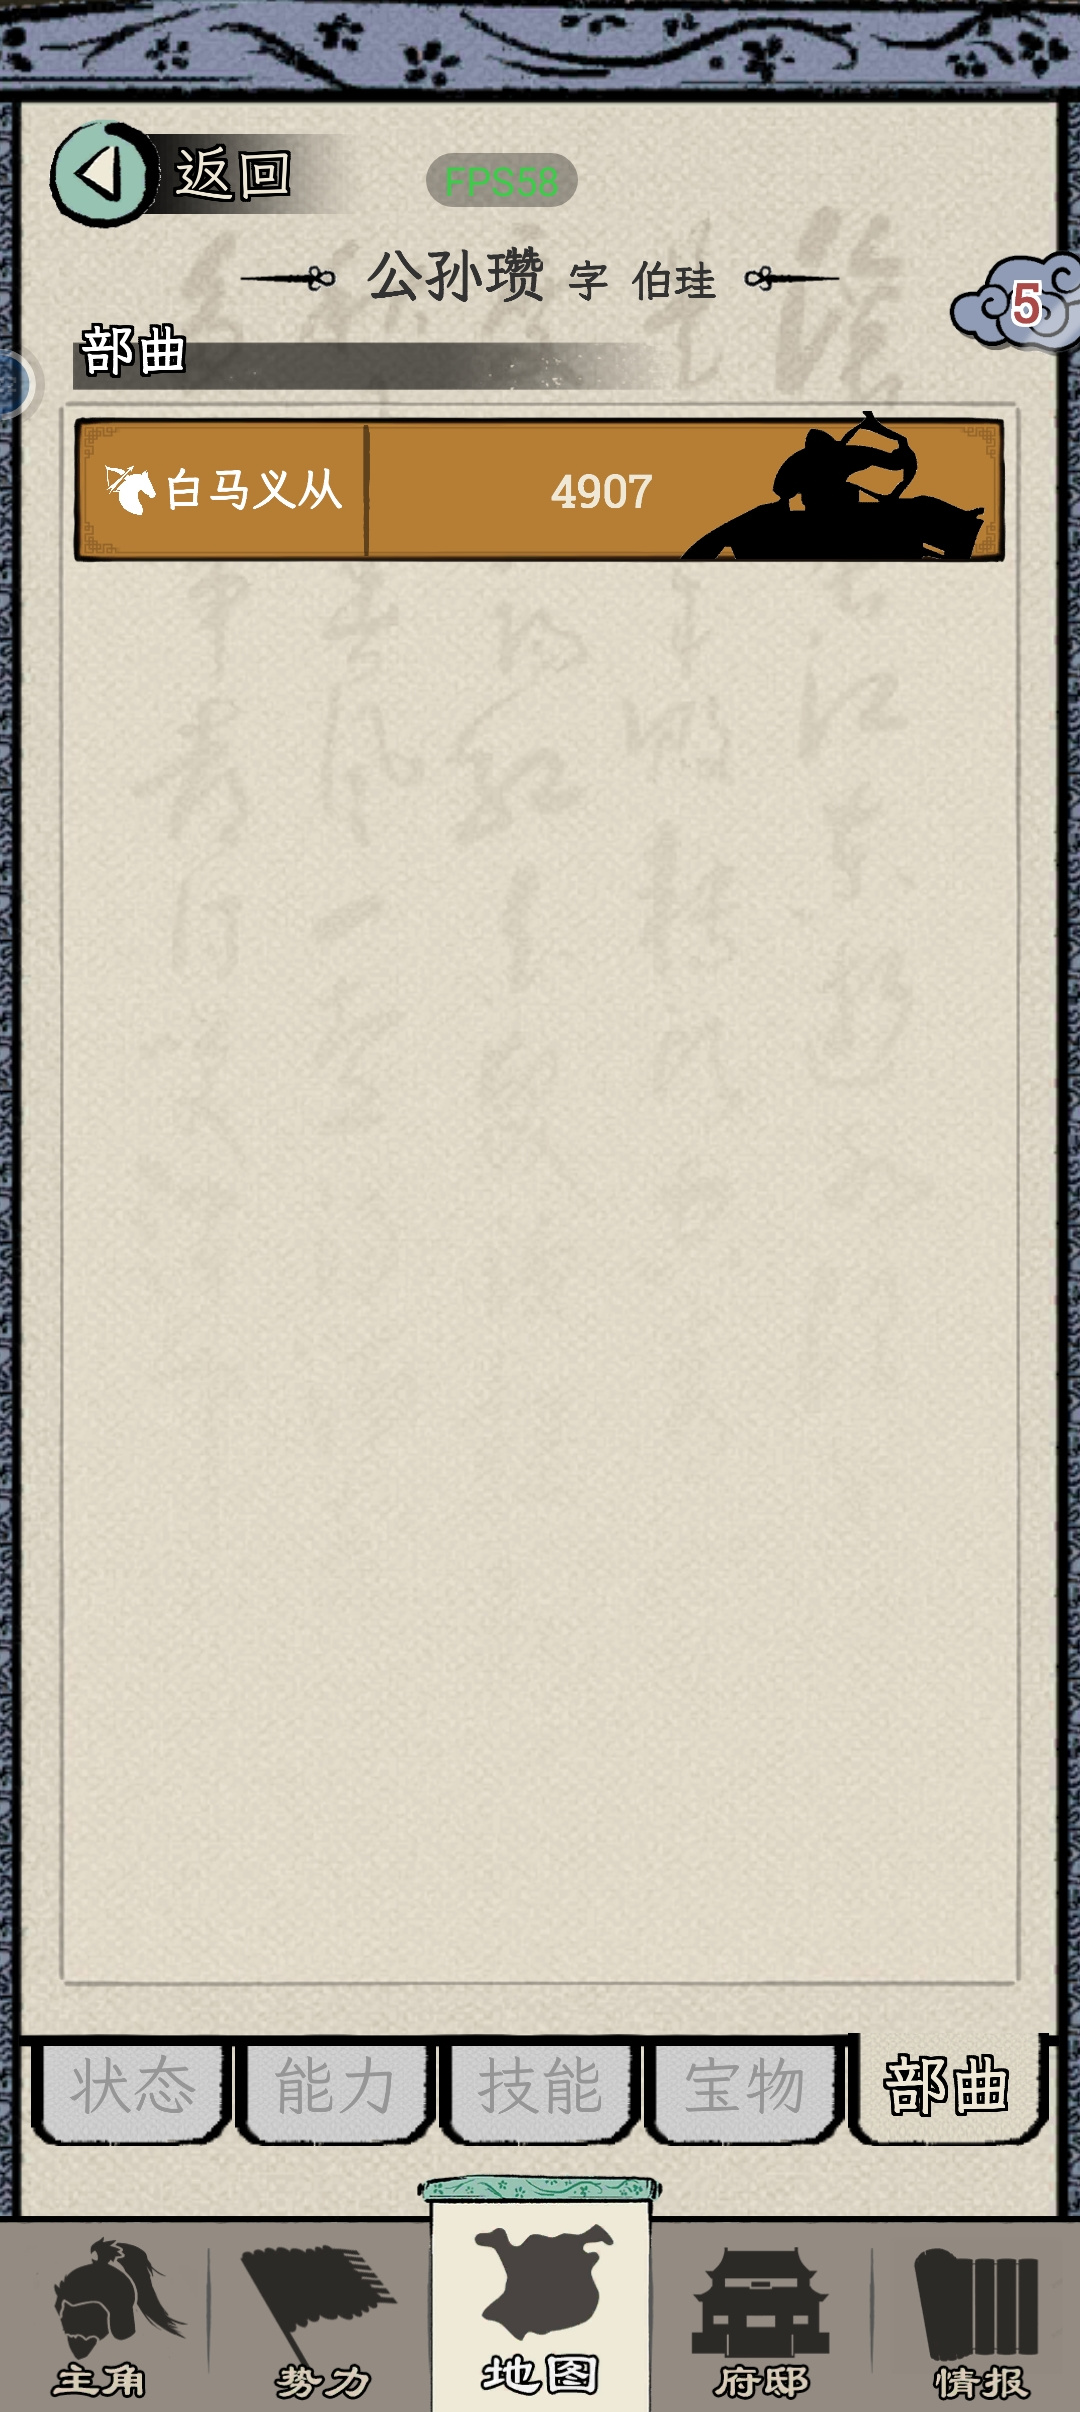 返回
FPS58
公孙瓒 字 伯珪
5
部曲
白马义从 4907
状态 能力 技能 宝物 部曲
主角 势力 地图 府邸 情报